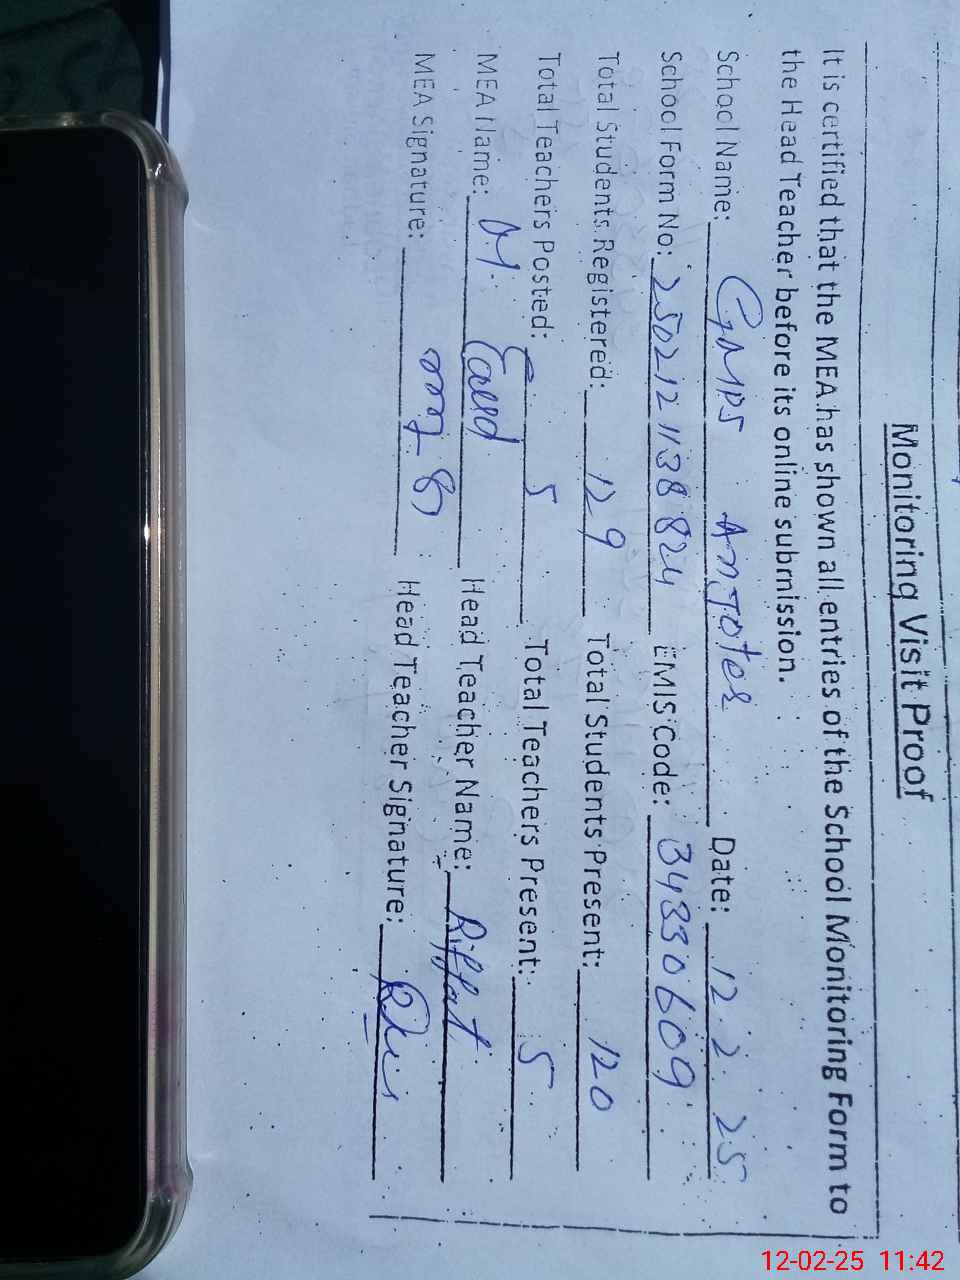 Monitoring Visit Proof
It is certified that the MEA has shown all entries of the School Monitoring Form to
the Head Teacher before its online submission.
School Name: GMPS Date: 12 2 25
School Form No: 250212 1138 824 EMIS Code: 34330609
Total Students Registered: 129 Total Students Present: 120
Total Teachers Posted: 5 Total Teachers Present: 5
MEA Name: M. Head Teacher Name: Riffat
MEA Signature: Head Teacher Signature:
12-02-25 11:42